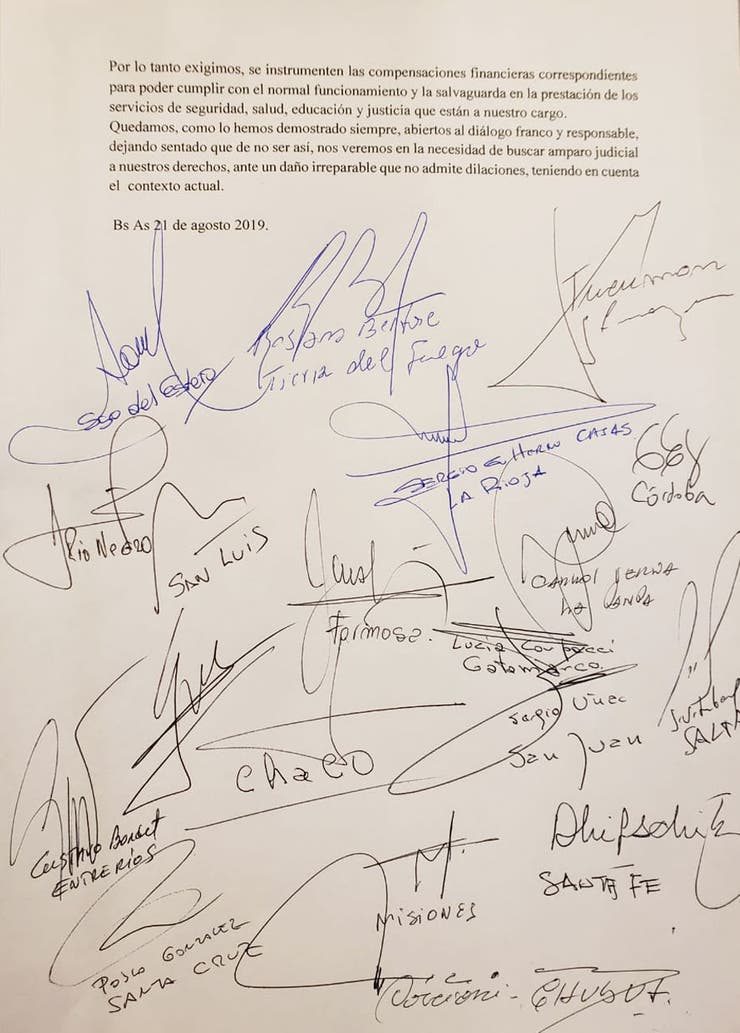 Por lo tanto exigimos, se instrumenten las compensaciones financieras correspondientes
para poder cumplir con el normal funcionamiento y la salvaguarda en la prestación de los
servicios de seguridad, salud, educación y justicia que están a nuestro cargo.
Quedamos, como lo hemos demostrado siempre, abiertos al diálogo franco y responsable,
dejando sentado que de no ser así, nos veremos en la necesidad de buscar amparo judicial
a nuestros derechos, ante un daño irreparable que no admite dilaciones, teniendo en cuenta
el contexto actual.
Bs As 21 de agosto 2019.
Tucuman
Tierra del Fuego
Sgo del Estero
SERGIO G. HERN CASAS
LA RIOJA
Córdoba
Rio Negro
SAN LUIS
LA PAMPA
Formosa.
Lucia Corpacci
Catamarca
Sergio Uñac
San Juan
SALTA
Chaco
GUSTAVO Bordet
ENTRE RÍOS
Dhipschitz
SANTA FE
MISIONES
GONZALEZ
SANTA CRUZ
CHUBUT.